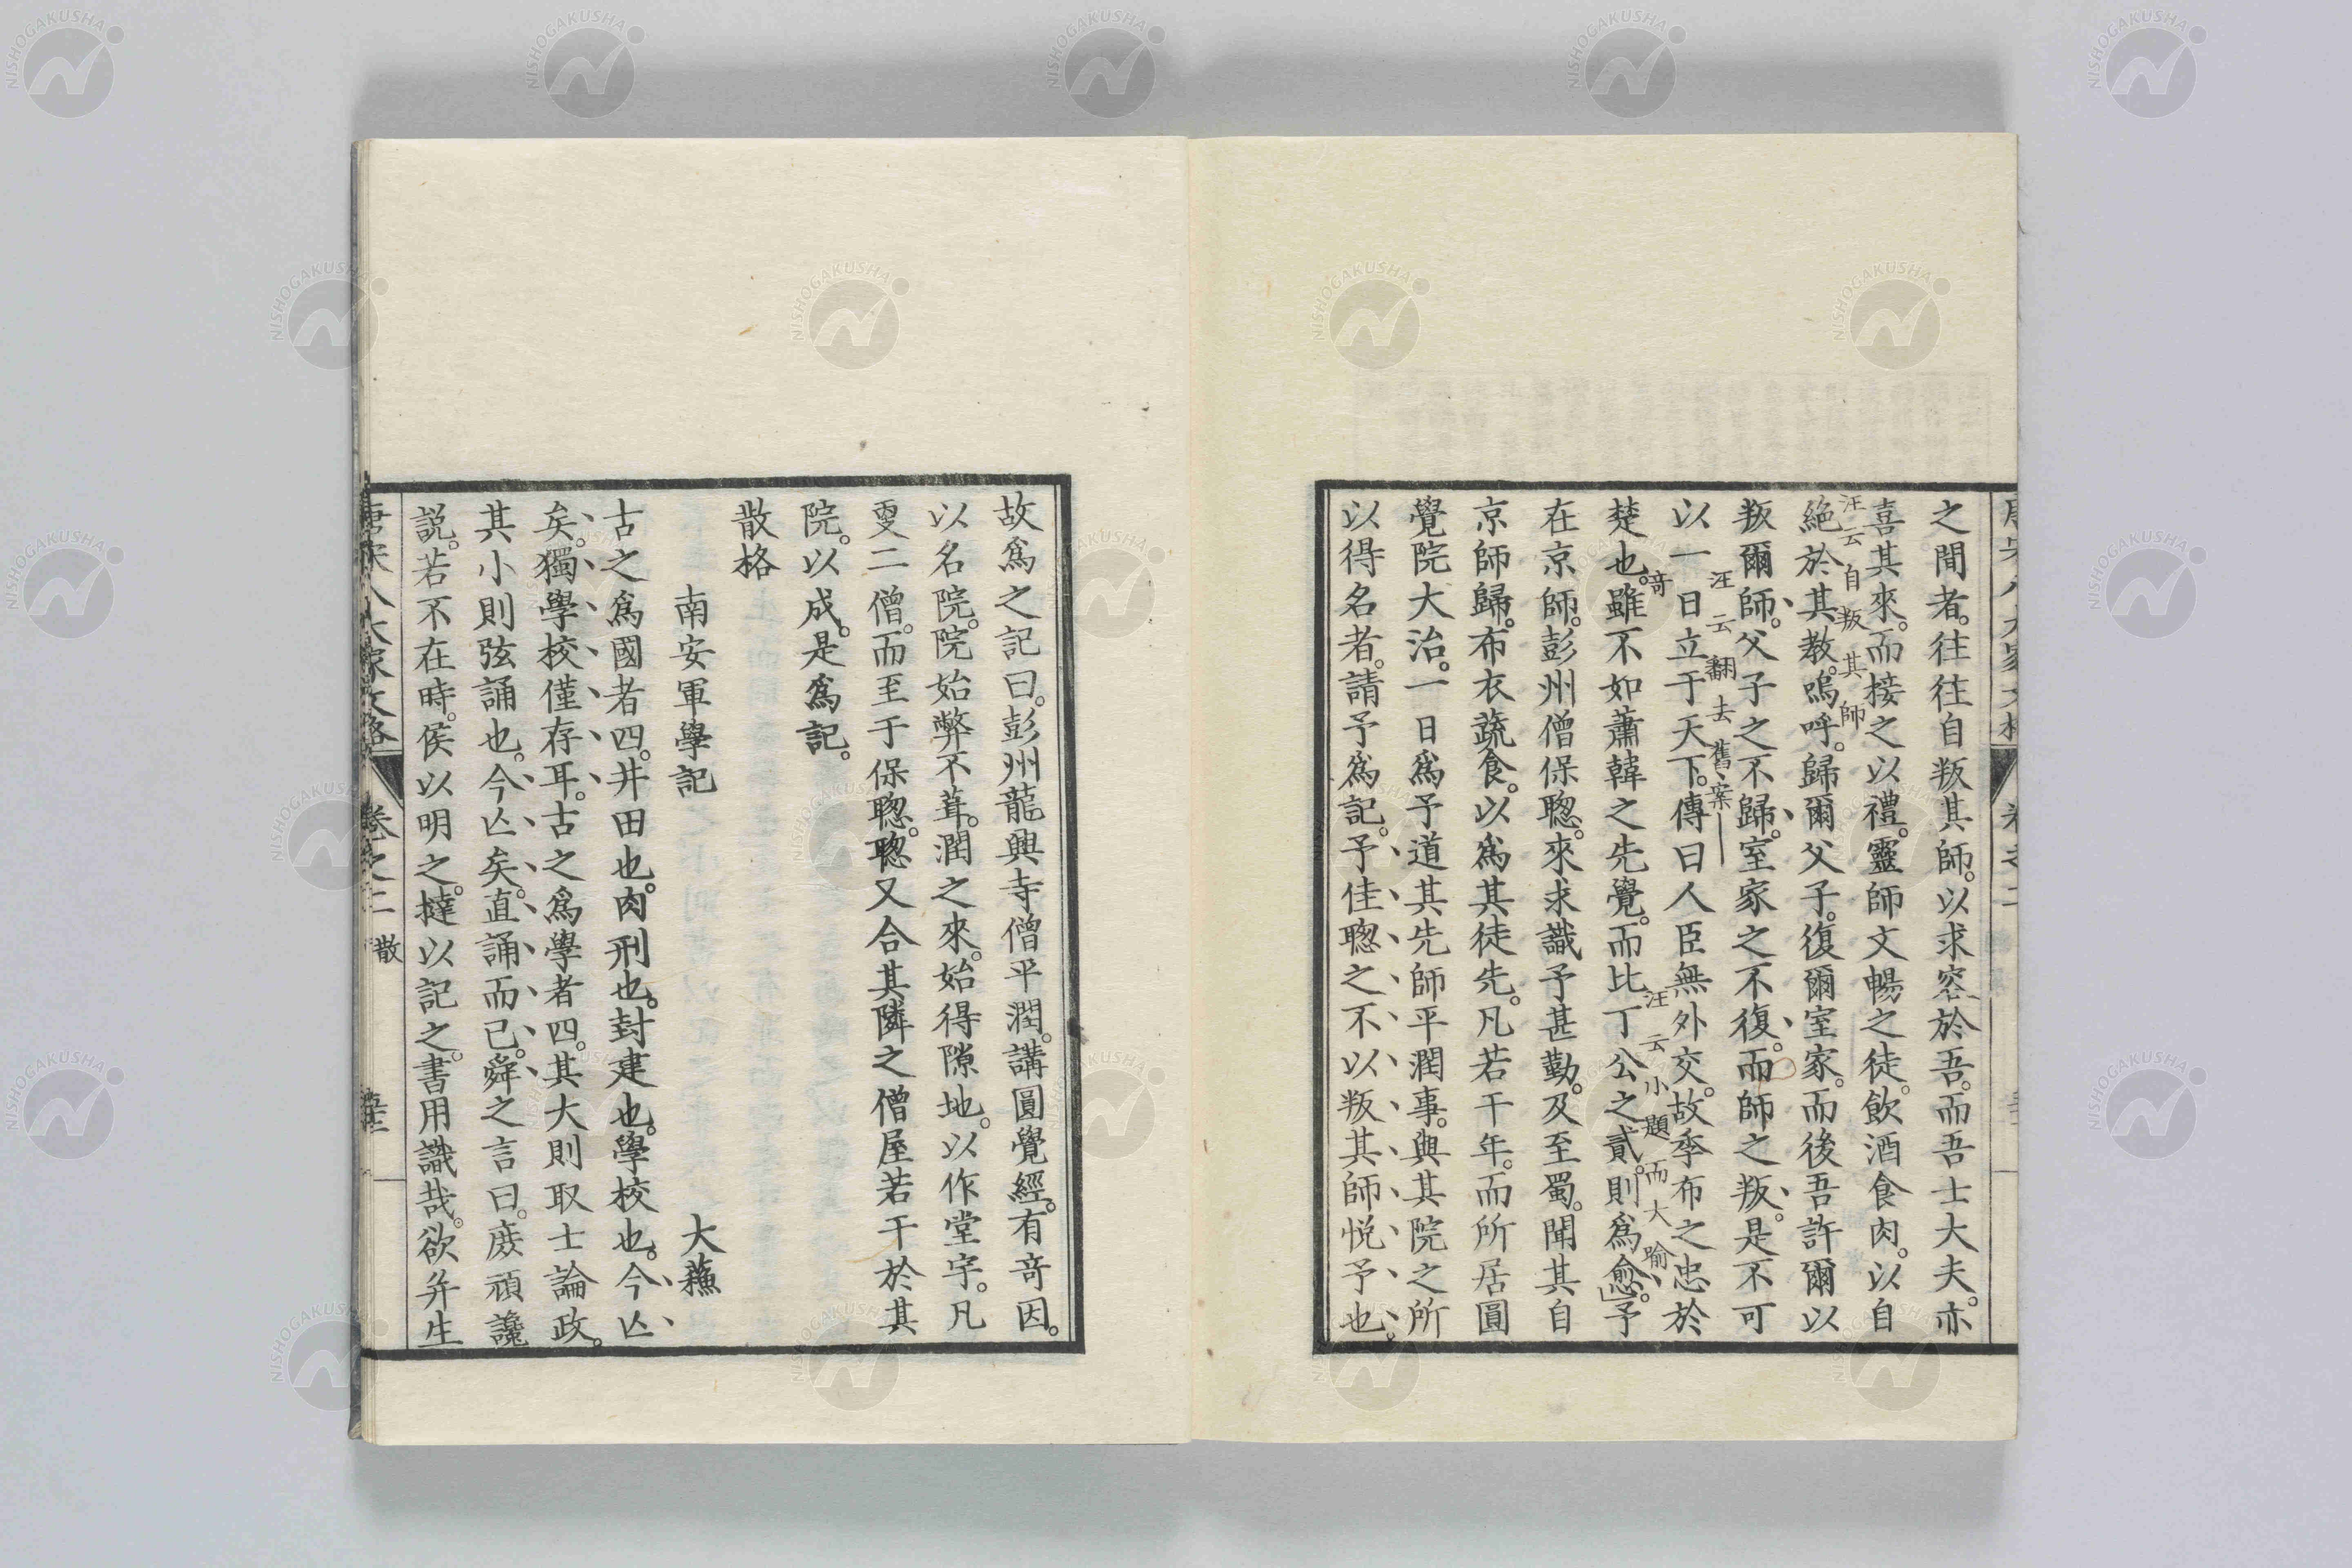 之間者。往往自叛其師。以求容於吾。而吾士大夫。亦
喜其來。而接之以禮。靈師文暢之徒。飲酒食肉。以自
汪云自叛其師
絕於其教。嗚呼。歸爾父子。復爾室家。而後吾許爾以
叛爾師。父子之不歸。室家之不復。而師之叛。是不可
汪云翻去舊案
以一日立于天下。傳曰人臣無外交。故季布之忠於
奇
汪云小題而大喻
楚也。雖不如蕭韓之先覺。而比丁公之貳。則爲愈。予
在京師。彭州僧保聰。來求識予甚勤。及至蜀。聞其自
京師歸。布衣蔬食。以爲其徒先。凡若干年。而所居圓
覺院大治。一日爲予道其先師平潤事。與其院之所
以得名者。請予爲記。予佳聰之不以叛其師悅予也。
故爲之記曰。彭州龍興寺僧平潤。講圓覺經。有奇因。
以名院。院始弊不葺。潤之來。始得隙地。以作堂宇。凡
更二僧。而至于保聰。聰又合其隣之僧屋若干於其
院。以成。是爲記。
散格
南安軍學記
大蘓
古之爲國者四。井田也。肉刑也。封建也。學校也。今亾
矣。獨學校僅存耳。古之爲學者四。其大則取士論政。
其小則弦誦也。今亾矣。直誦而已。舜之言曰。庶頑讒
說。若不在時。侯以明之。撻以記之。書用識哉。欲并生
唐宋八大家文格
卷之二
散